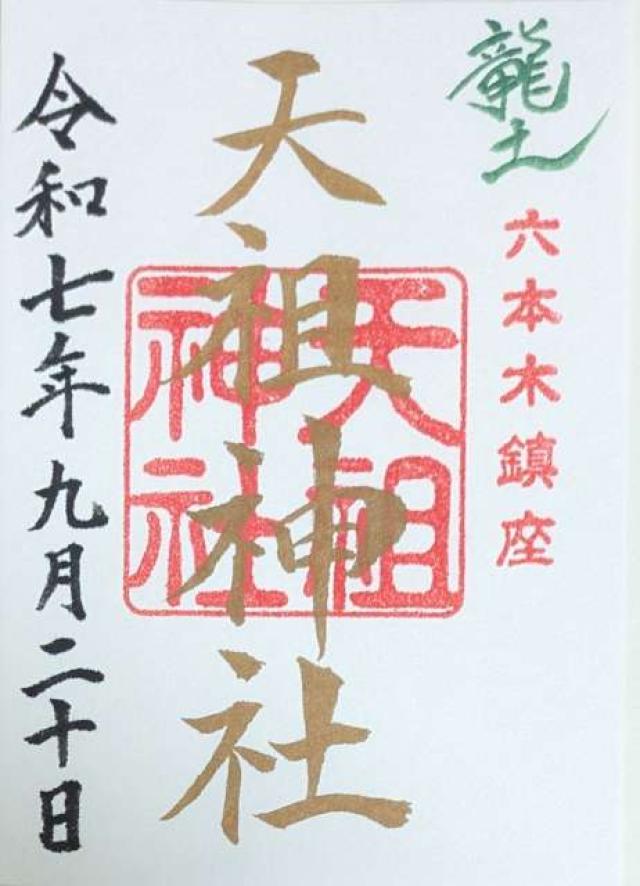 龍土
六本木鎮座
天祖神社
天祖
神社
令和七年九月二十日